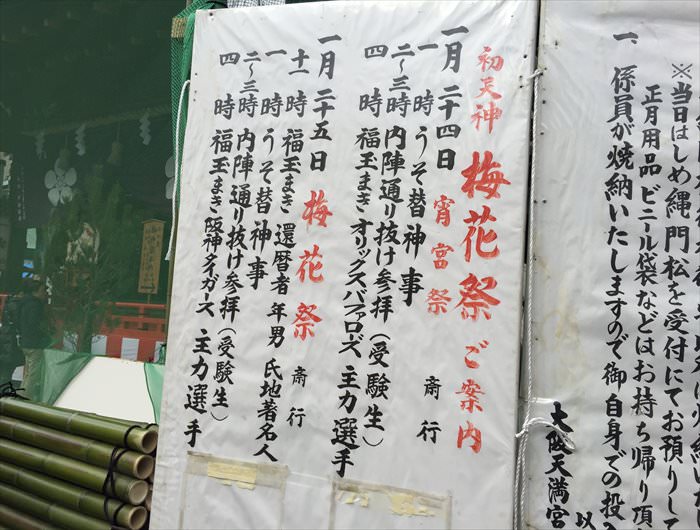 ※当日はしめ縄門松を受付にてお預りして
正月用品 ビニール袋などはお持ち帰り頂
一、係員が焼納いたしますので御自身での投
以
大阪天満宮
初天神 梅花祭 ご案内
一月二十四日 宵宮祭
一時 うそ替神事 斎行
二〜三時 内陣通り抜け参拝(受験生)
四時 福玉まき オリックスバファローズ 主力選手
一月二十五日 梅花祭
十一時 福玉まき 還暦者 年男 氏地著名人
一時 うそ替神事 斎行
二〜三時 内陣通り抜け参拝(受験生)
四時 福玉まき 阪神タイガース 主力選手